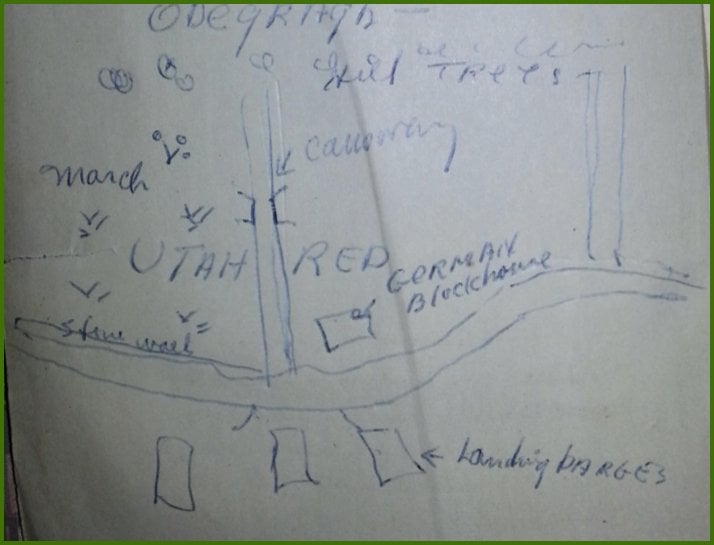 TREES
Causeway
march
UTAH RED
GERMAN
Blockhouse
Stone wall
Landing BARGES